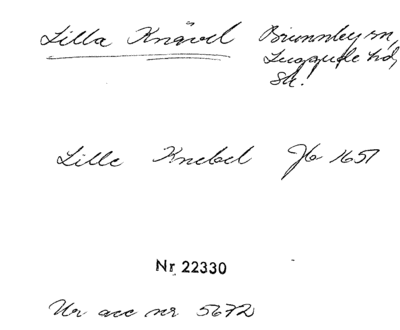 Lilla Knävel Brunnby sn,
Luggude hd,
Sk.
Lille Knebel Jb 1651
Nr 22330
Ur acc nr 5672